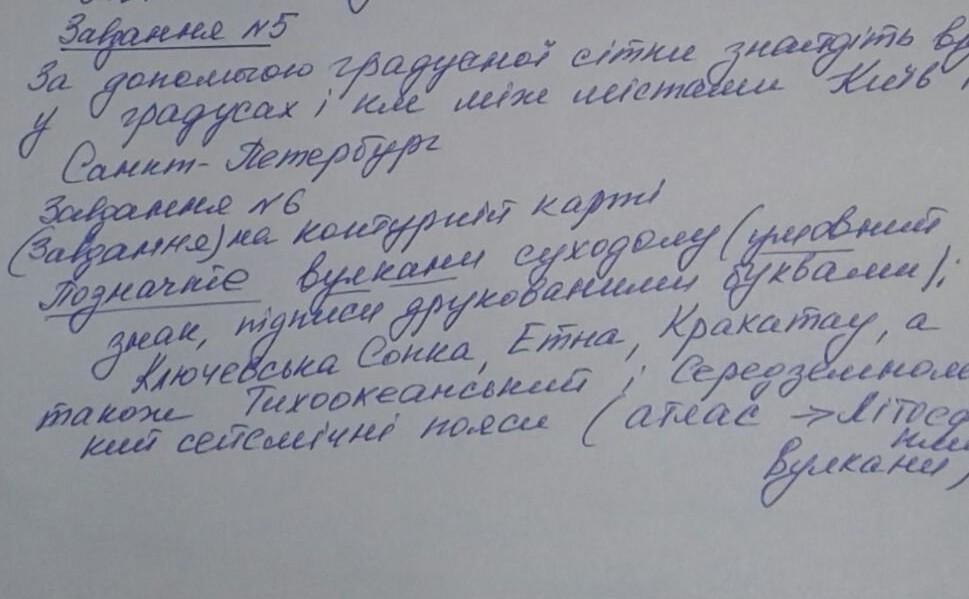 Завдання №5
За допомогою градусної сітки знайдіть
у градусах і км між містами Київ
Санкт-Петербург
Завдання №6
(Завдання) на контурній карті
Позначте вулкани суходолу (умовний
знак, підписи друкованими буквами):
Ключевська Сопка, Етна, Кракатау, а
також Тихоокеанський і Середземномо
кий сейсмічні пояси (атлас → Літосф
Вулкани)